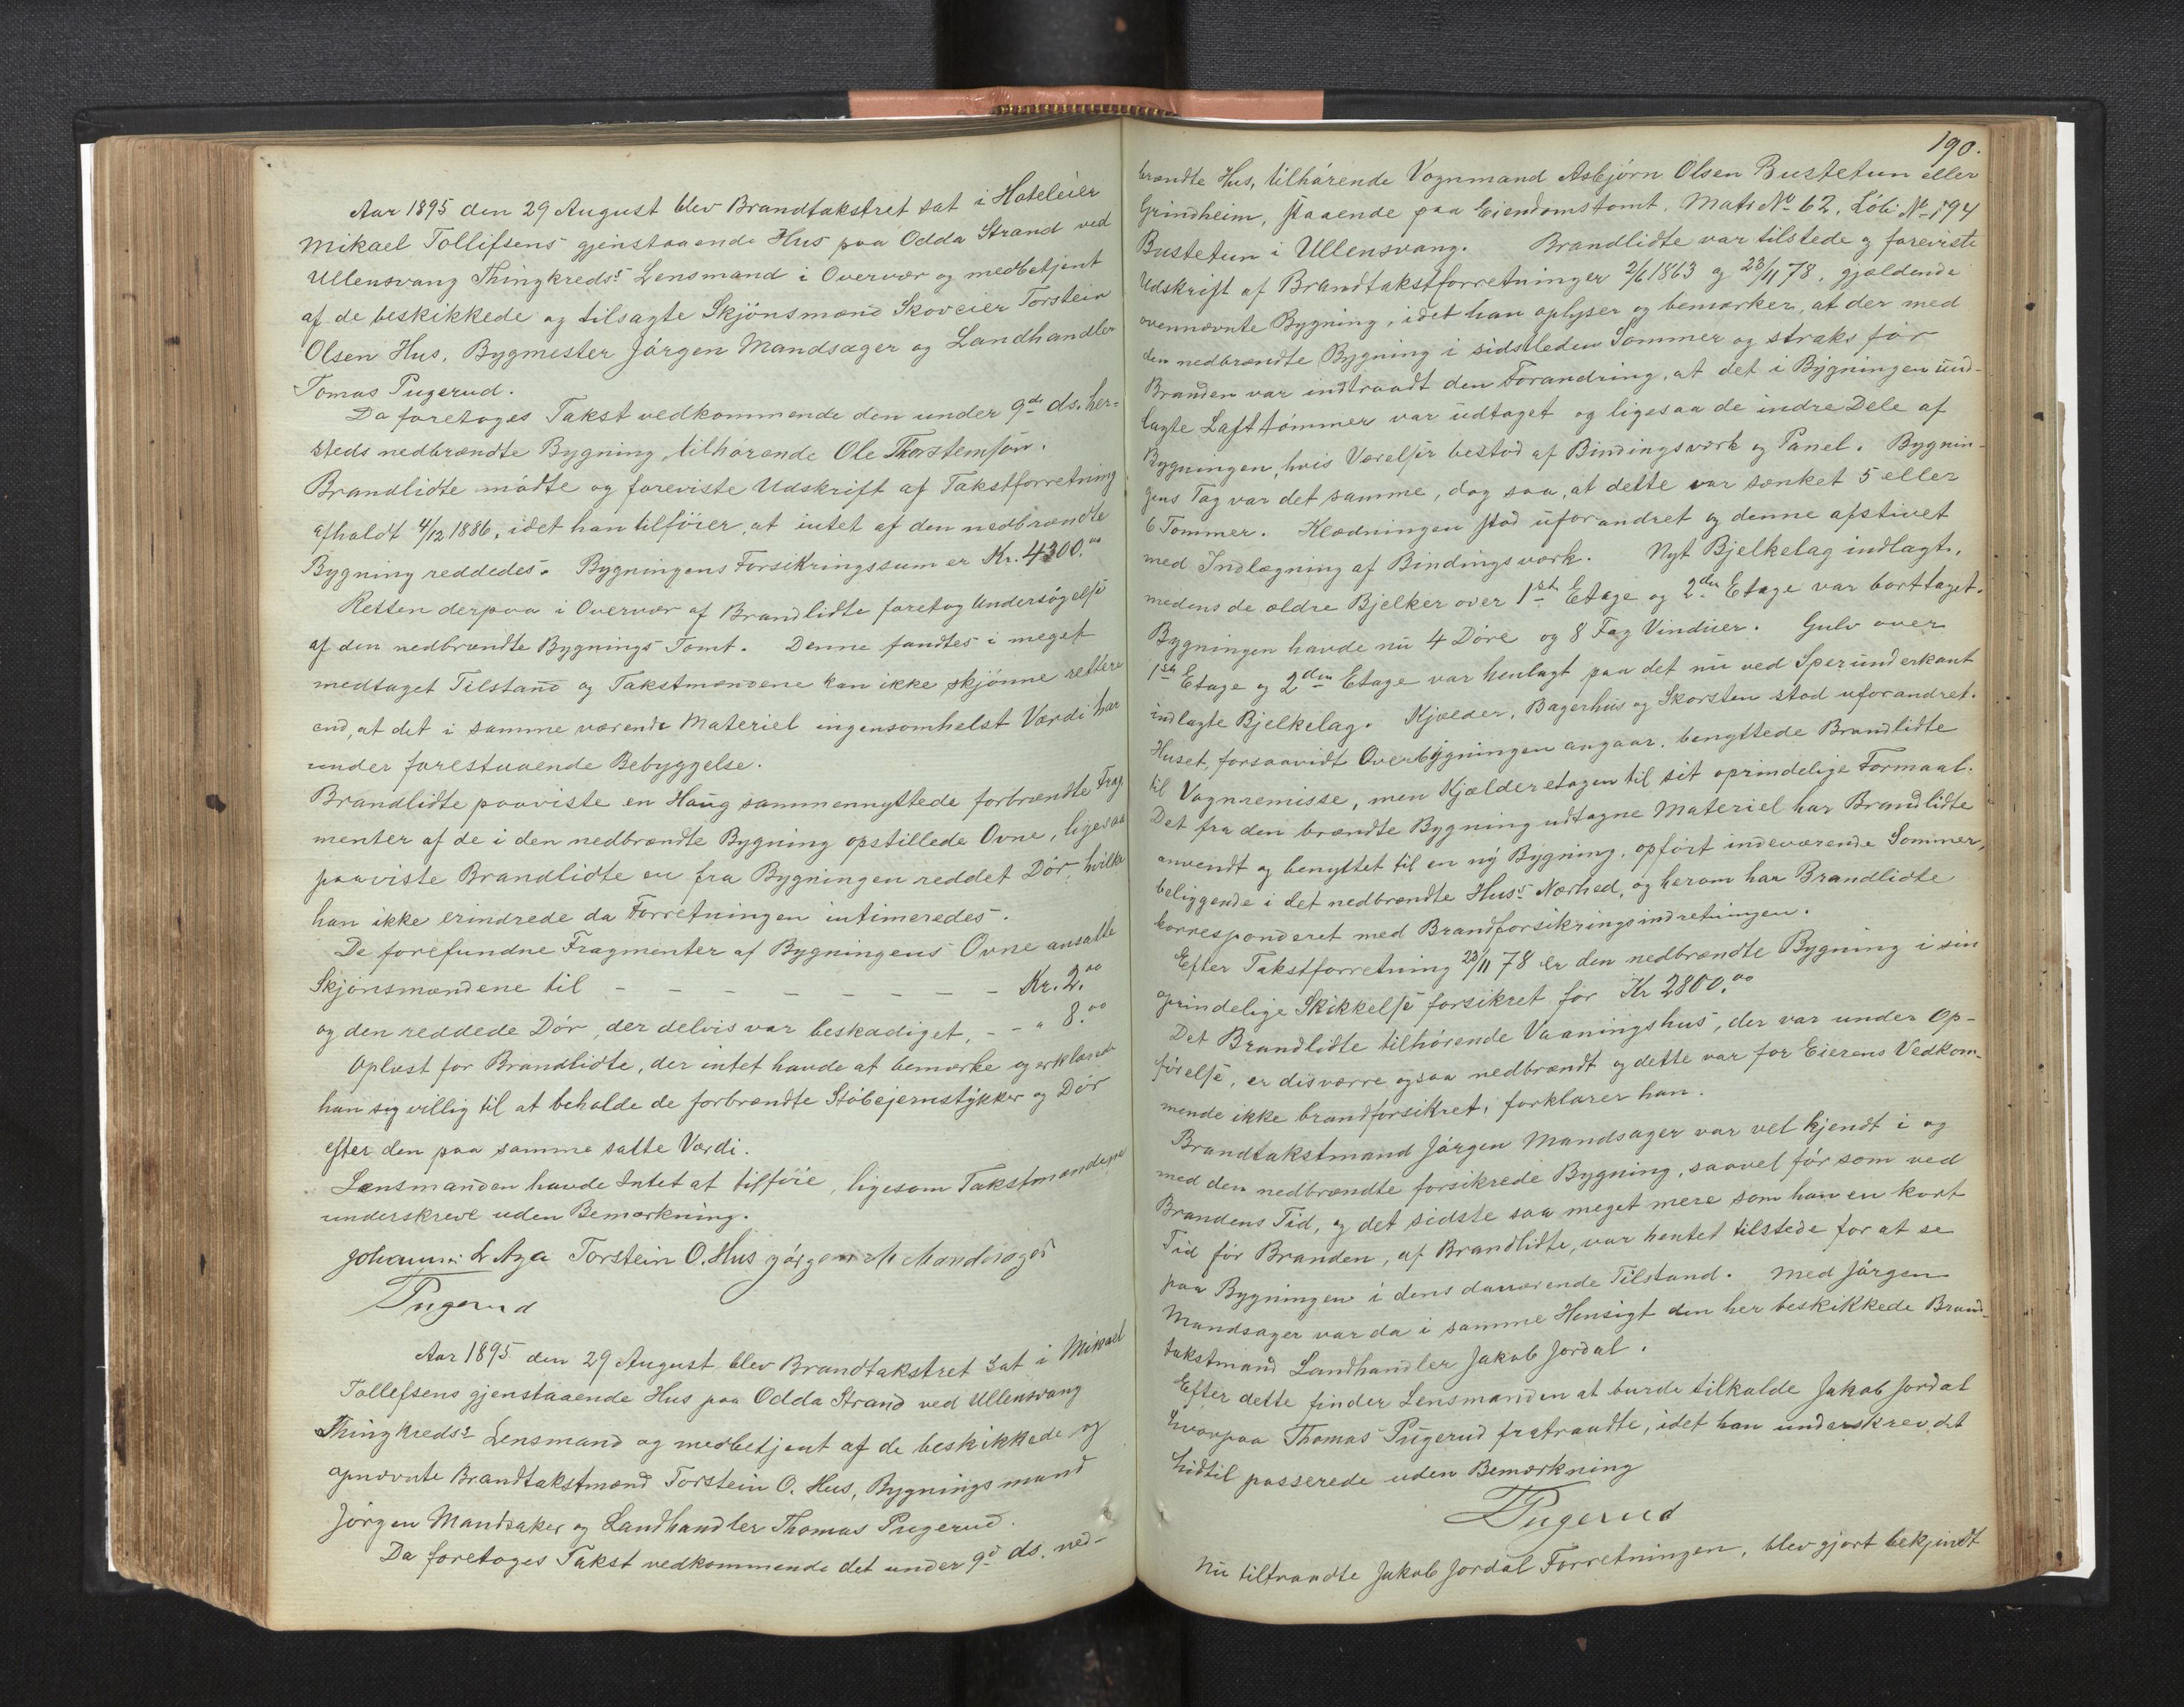 Aar 1895 den 29 August blev Brandtakstret sat i Hoteleier
Mikael Tollifsens gjenstaaende Hus paa Odda Strand ved
Ullensvang Thingkreds's Lensmand i Overvær og medbetjent
af de beskikkede og tilsagte Skjönsmænd Skoveier Torstein
Olsen Hus, Bygmester Jörgen Mandsager og Landhandler
Tomas Pugerud.
Da foretoges Takst vedkommende den under 9de ds. her-
steds nedbrændte Bygning, tilhörende Ole Thorstensön.
Brandlidte mödte og foreviste Udskrift af Takstforretning
afholdt 4/12 1886, idet han tilföier, at intet af den nedbrændte
Bygning reddedes. Bygningens Forsikringssum er Kr. 4300.00
Retten derpaa i Overvær af Brandlidte foretog Undersögelse
af den nedbrændte Bygnings Tomt. Denne fandtes i meget
medtaget Tilstand og Takstmændene kan ikke skjönne rettere
end, at det i samme værende Materiel ingensomhelst Værdi har
under forestaaende Bebyggelse.
Brandlidte paaviste en Haug sammennyttede forbrændte Frag-
menter af de i den nedbrændte Bygning opstillede Ovne, ligesaa
paaviste Brandlidte en fra Bygningen reddet Dör, hvilke
han ikke erindrede da Forretningen intimeredes.
De forefundne Fragmenter af Bygningens Ovne ansatte
Skjönsmændene til - - - - - - - - Kr. 2.00
og den reddede Dör, der delvis var beskadiget, - - " 8.00
Oplæst for Brandlidte, der intet havde at bemærke og erklærede
han sig villig til at beholde de forbrændte Stöbejernstykker og Dör
efter den paa samme satte Værdi.
Lensmanden havde Intet at tilföie, ligesom Takstmændene
underskrev uden Bemærkning.
Johannes L Aga Torstein O. Hus Jörgen M Mandsager
Pugerud
Aar 1895 den 29 August blev Brandtakstret sat i Mikael
Tollefsens gjenstaaende Hus paa Odda Strand ved Ullensvang
Thingkreds's Lensmand og medbetjent af de beskikkede og
opnævnte Brandtakstmænd Torstein O. Hus, Bygningsmand
Jörgen Mandsaker og Landhandler Thomas Pugerud.
Da foretoges Takst vedkommende det under 9d ds. ned-
190.
brændte Hus, tilhörende Vognmand Asbjörn Olsen Bustetun eller
Grindheim, staaende paa Eiendomstomt. Matr No 62, Löb No 194
Bustetun i Ullensvang. Brandlidte var tilstede og foreviste
Udskrift af Brandtakstforretninger 2/6 1863 og 23/11 78, gjældende
ovennævnte Bygning, idet han oplyser og bemærker, at der med
den nedbrændte Bygning i sidstleden Sommer og straks för
Branden var indtraadt den Forandring, at det i Bygningen ind-
lagte Lafttömmer var udtaget og ligesaa de indre Dele af
Bygningen, hvis Værelser bestod af Bindingsværk og Panel. Bygnin-
gens Tag var det samme, dog saa, at dette var sænket 5 eller
6 Tommer. Klædningen stod uforandret og denne afstivet
med Indlægning af Bindingsværk. Nyt Bjelkelag indlagt,
medens de ældre Bjelker over 1ste Etage og 2den Etage var borttaget.
Bygningen havde nu 4 Döre og 8 Fag Vinduer. Gulv over
1ste Etage og 2den Etage var henlagt paa det nu ved Sperunderkant
indlagte Bjelkelag. Kjælder, Bagerhus og Skorsten stod uforandret.
Huset, forsaavidt Overbygningen angaar, benyttede Brandlidte
til Vognremisse, men Kjælderetagen til sit oprindelige Formaal.
Det fra den brændte Bygning udtagne Materiel har Brandlidte
anvendt og benyttet til en ny Bygning, opfört indeværende Sommer,
beliggende i det nedbrændte Hus's Nærhed, og herom har Brandlidte
korresponderet med Brandforsikringsindretningen.
Efter Takstforretning 23/11 78 er den nedbrændte Bygning i sin
oprindelige Skikkelse forsikret for Kr 2800.00
Det Brandlidte tilhörende Vaaningshus, der var under Op-
förelse, er desværre ogsaa nedbrændt og dette var for Eierens Vedkom-
mende ikke brandforsikret, forklarer han.
Brandtakstmand Jörgen Mandsager var vel kjendt i og
med den nedbrændte forsikrede Bygning, saavel för som ved
Brandens Tid, og det sidste saa meget mere som han en kort
Tid för Branden, af Brandlidte, var hentet tilstede for at se
paa Bygningen i dens daværende Tilstand. Med Jörgen
Mandsager var da i samme Hensigt den her beskikkede Brand-
takstmand Landhandler Jakob Jordal.
Efter dette finder Lensmanden at burde tilkalde Jakob Jordal
hvorpaa Thomas Pugerud fratraadte, idet han underskrev det
hidtil passerede uden Bemærkning
T Pugerud
Nu tiltraadte Jakob Jordal Forretningen, blev gjort bekjendt